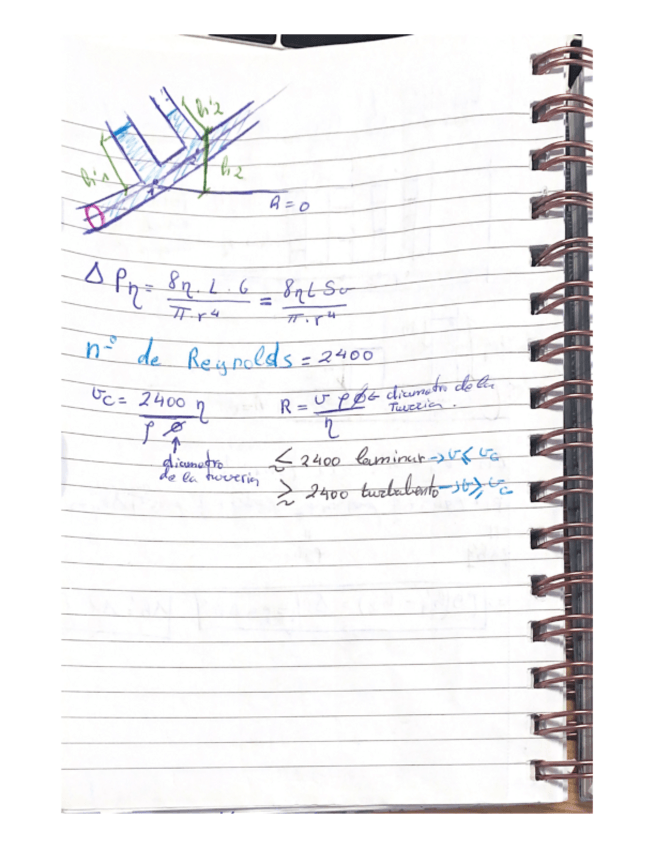 h'2
h'1
h2
h=0
Δ Pη = 8η. L . G / π.r⁴ = 8ηL Sv / π.r⁴
nº de Reynolds = 2400
vc = 2400 η / ρ ∅
R = v ρ ∅ / η ← diametro de la tuveria.
diametro
de la tuveria
≲ 2400 laminar → v ≤ vc
≳ 2400 turbulento → v ≥ vc